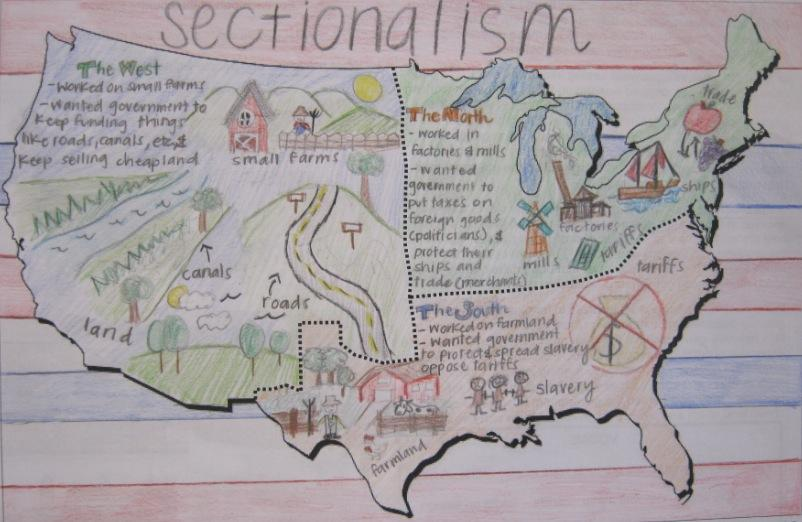 sectionalism
The West
- worked on small farms
- wanted government to
keep funding things
like roads, canals, etc, &
keep selling cheap land
small farms
canals
roads
land
The North
- worked in
factories & mills
- wanted
government to
put taxes on
foreign goods
(politicians), &
protect their
ships and
trade (merchants)
trade
ships
factories
mills
tariffs
The South
- worked on farmland
- wanted government
to protect & spread slavery
oppose tariffs
tariffs
$
slavery
farmland